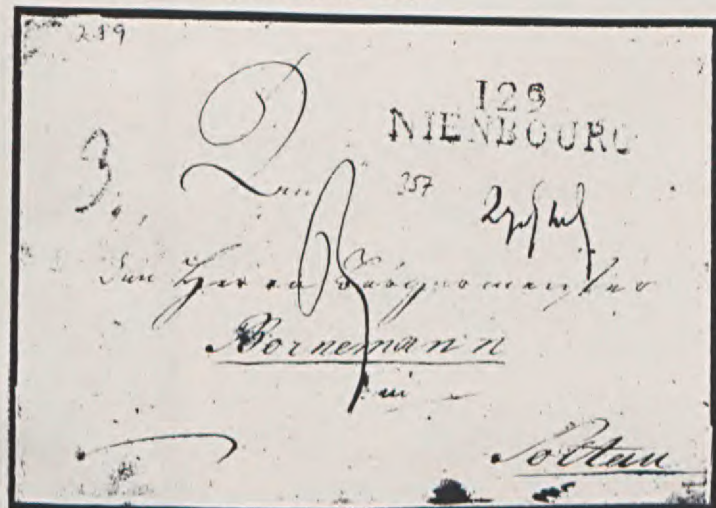 239
129
NIENBOURG
3.
357
den Herrn Bürgermeister
Bornemann
in
Soltau